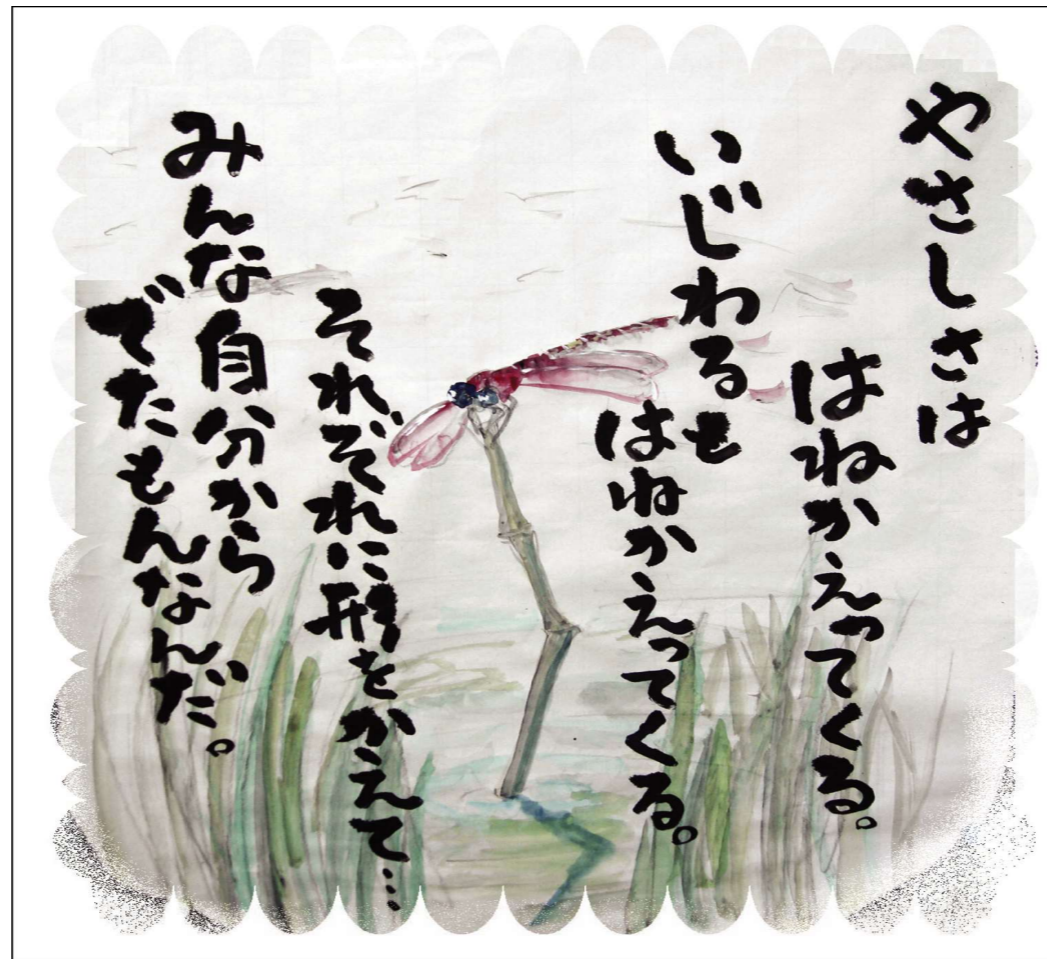 やさしさは
はねかえってくる。
いじわるも
はねかえってくる。
それぞれに形をかえて…
みんな自分から
でたもんなんだ。